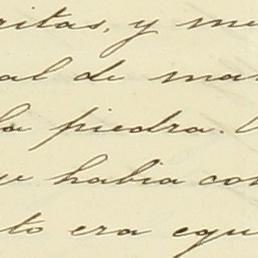 ritas, y me
al de ma
la piedra.
habia co
to era equ